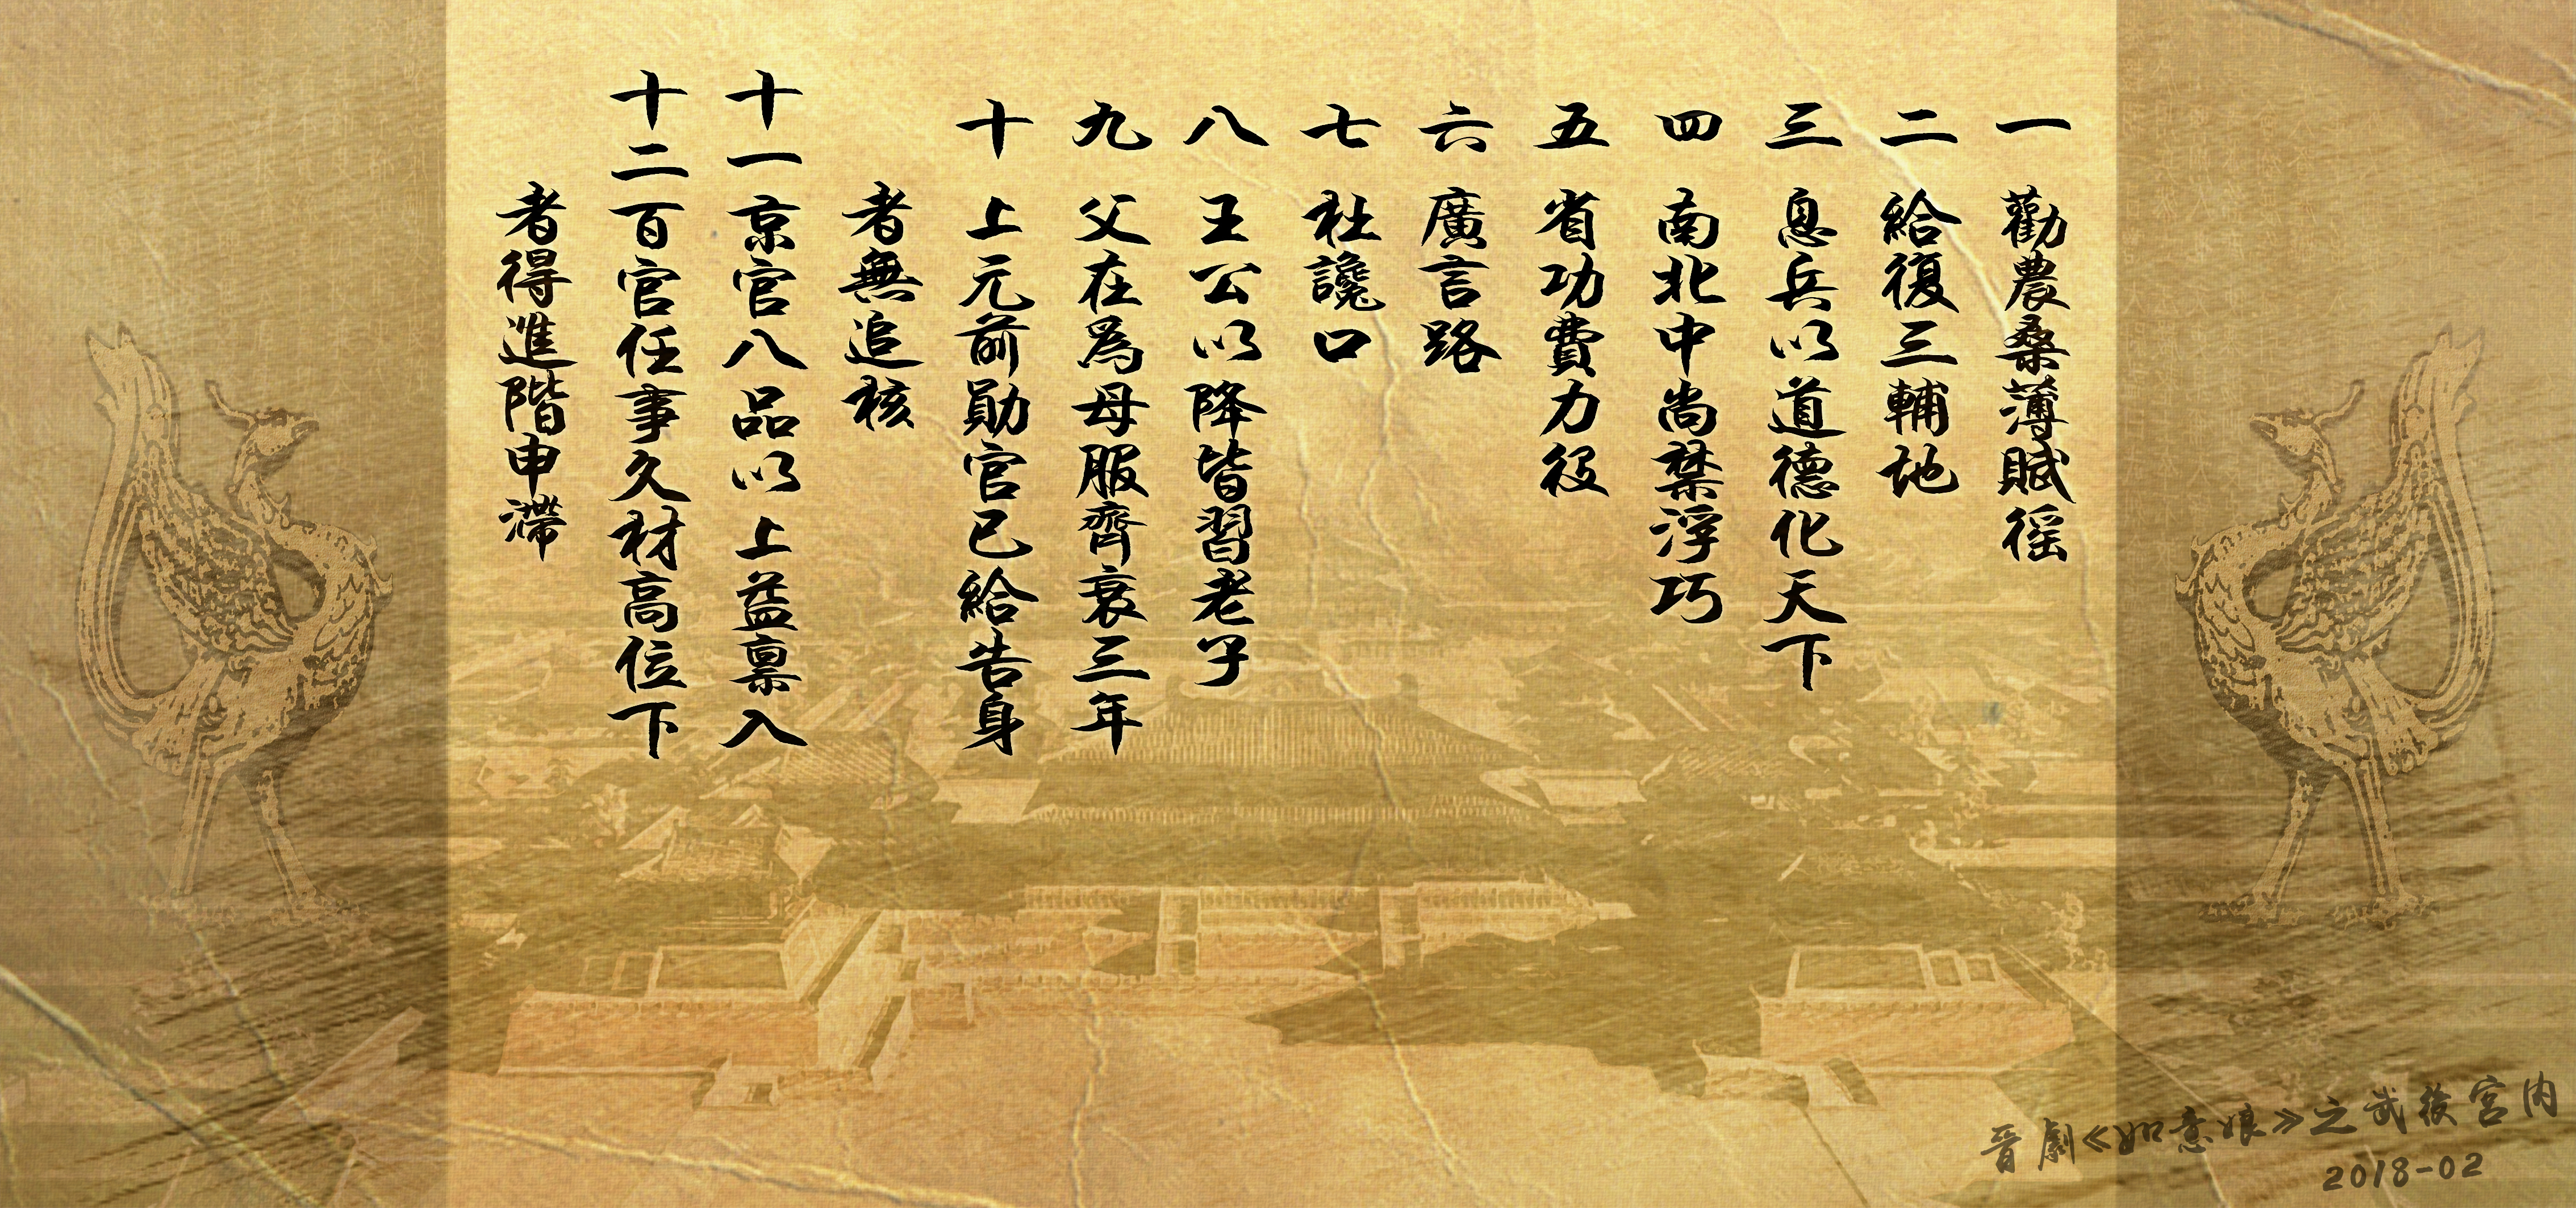 一 勸農桑薄賦徭
二 給復三輔地
三 息兵以道德化天下
四 南北中尚禁浮巧
五 省功費力役
六 廣言路
七 杜讒口
八 王公以降皆習老子
九 父在爲母服齊衰三年
十 上元前勛官已給告身
者無追核
十一 京官八品以上益禀入
十二 百官任事久材高位下
者得進階申滯
晉劇《如意娘》之武後宮內
2018-02